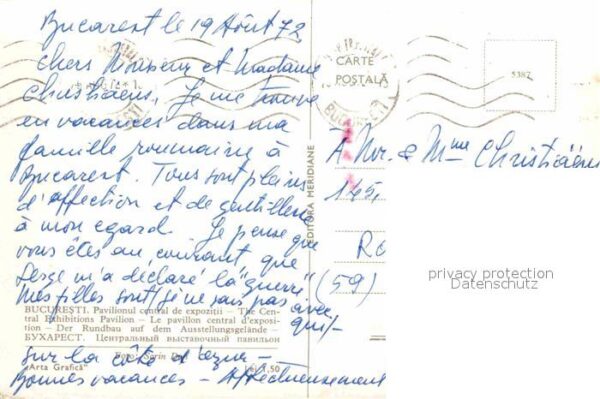 Bucarest le 19 Août 72
Chers Monsieur et Madame
Christiaëns, Je me trouve
en vacances dans ma
famille roumaine à
Bucarest. Tous sont pleins
d'affection et de gentillesse
à mon égard. Je pense que
vous êtes au courant que
Serge m'a déclaré la "guerre"
Mes filles sont (je ne sais pas avec
qui)-
BUCUREŞTI. Pavilionul central de expoziţii — The Cen-
tral Exhibitions Pavilion — Le pavillon central d'exposi-
tion — Der Rundbau auf dem Ausstellungsgelände —
БУХАРЕСТ. Центральный выставочный павильон
sur la côte d'azur -
Foto: Sorin
"Arta Grafică"
1,50
Bonnes vacances - Affectueusement
EDITURA MERIDIANE
CARTE
POŞTALĂ
5387
BUCUREŞTI
A Mr. & Mme Christiaëns
145,
Ro
(59)
privacy protection
Datenschutz